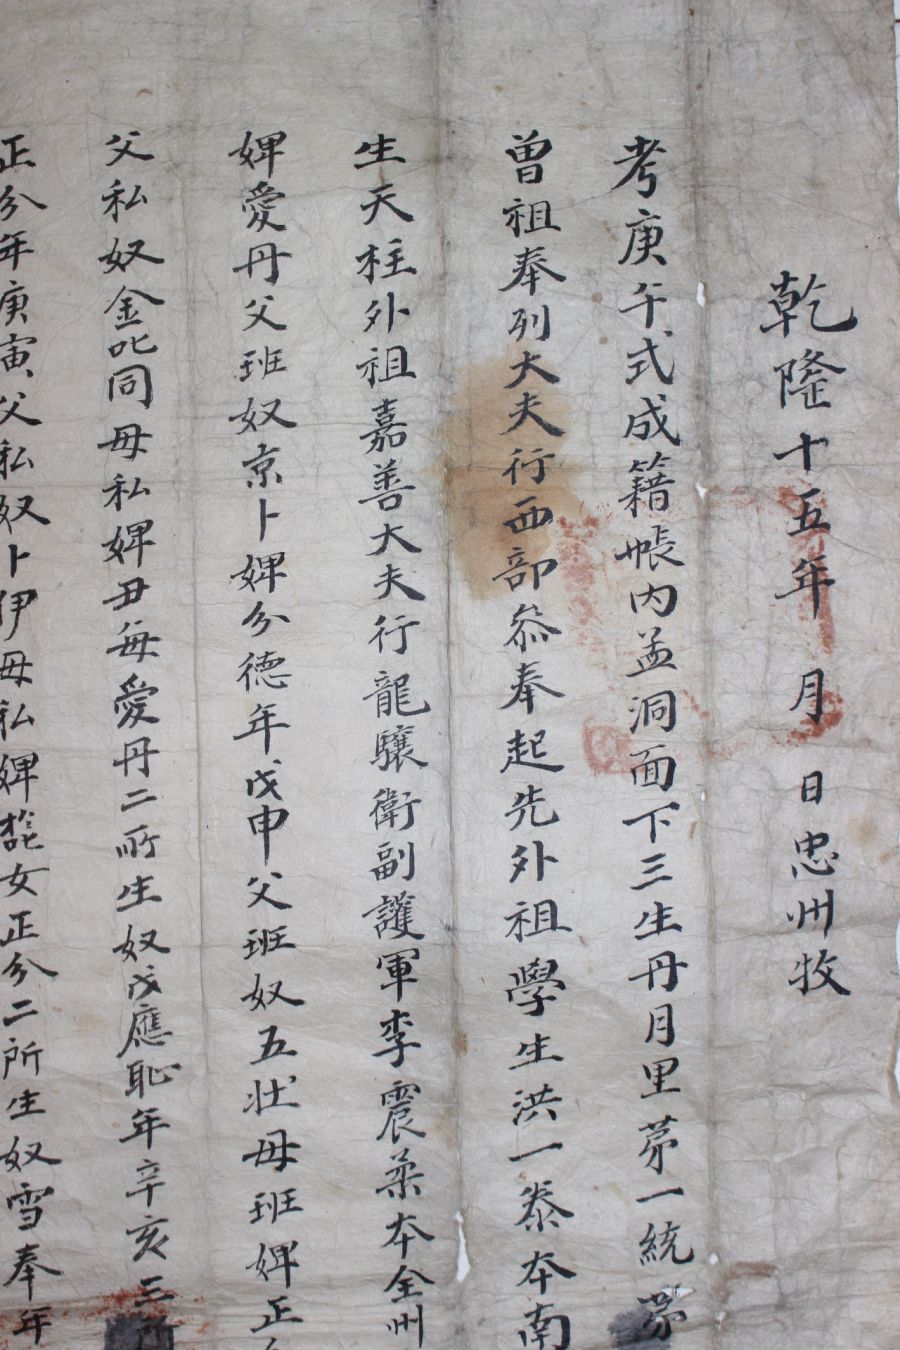 乾隆十五年 月 日忠州牧
考庚午式成籍帳內孟洞面下三生丹月里苐一統苐
曾祖奉列大夫行西部叅奉起先外祖學生洪一泰本南
生天柱外祖嘉善大夫行龍驤衛副護軍李震柔本全州
婢愛丹父班奴京卜婢分德年戊申父班奴五壯母班婢正
父私奴金叱同母私婢丑每愛丹二所生奴戊應耻年辛亥三所
正分年庚寅父私奴卜伊母私婢 女正分二所生奴雪奉年